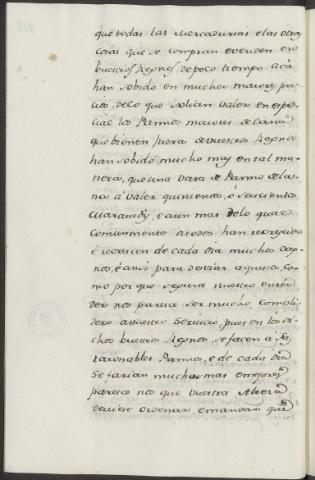 que todas las mercadurias e las otras
cosas que se compran e venden en
vuestros Reynos, de poco tiempo acá
han sobido en muchos maiores pre
cios, de lo que solian valer en espe
cial los Pannos maiores de lana
que vienen fuera de vuestros Reynos
han sobido mucho mas en tal ma
nera, que una vara de Panno de la
na á valer quinientos, ó seiscientos
maravedis, e aun mas de lo qual
comunmente a todos han recrescido
é recrescen de cada dia muchos dap
nos, é ansi para desviar aquesto, co
mo por que segund nuestro enten
der nos parece ser mucho compli
dero a vuestro servicio, pues en los di
chos vuestros Reynos se facen asaz
razonables Pannos, e de cada dia
se farian muchos mas e mejores
paresce nos que vuestra Alteza
deviese ordenar e mandar que